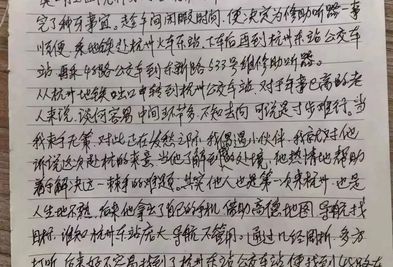 完了种牙事宜。趁午间闲暇时间，便决定为修助听器一事
顺便，乘地铁赴杭州火车东站，下车后再到杭州东站公交车
站再乘48路公交车到东新路633号维修助听器。
从杭州地铁口中转到杭州东站公交车站，对于年事已高的老
人来说，谈何容易，中间环节多，不知去向，可说是寸步难行。当
我束手无策，对此正在发愁之际，我偶遇小伙伴，我就对他
诉说这次赴杭的来意，当他了解到我的处境，他热情地帮助
着手解决这一棘手的难题。其实他人也是第一次来杭州，也是
人生地不熟，后来他拿出了自己的手机，借助高德地图导航找
目标，谁知杭州东站庞大，导航不管用。通过几经周折，多方
打听，后来好不容易找到了杭州东站公交车站，便找到